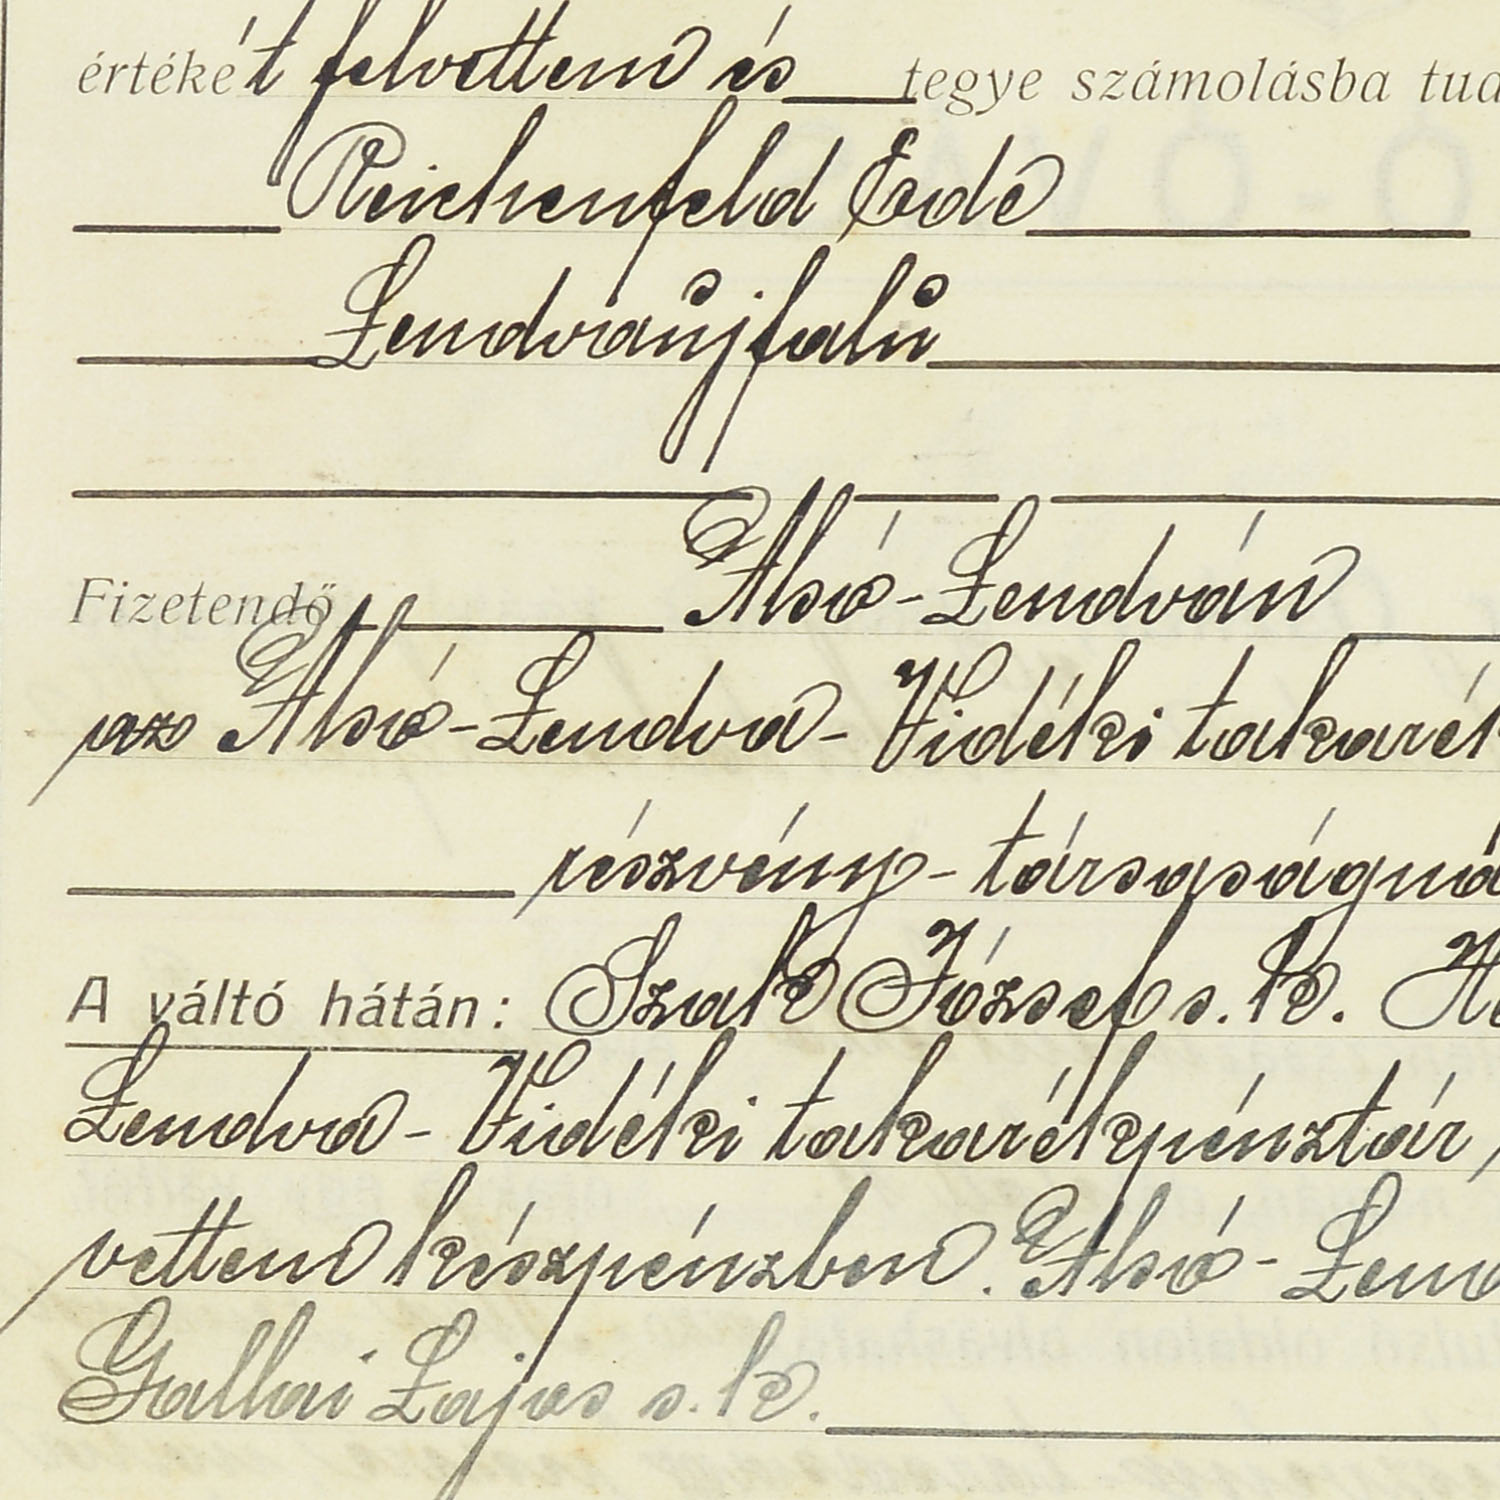 értékét felvettem és tegye számolásba
Reichenfeld Ede
Lendvaújfalu
Fizetendő Alsó-Lendván
az Alsó-Lendva-Vidéki
részvény-
A váltó hátán: Szak József s. k.
Lendva-Vidéki takarékpénztár
vettem készpénzben. Alsó-
Gallai Lajos s. k.